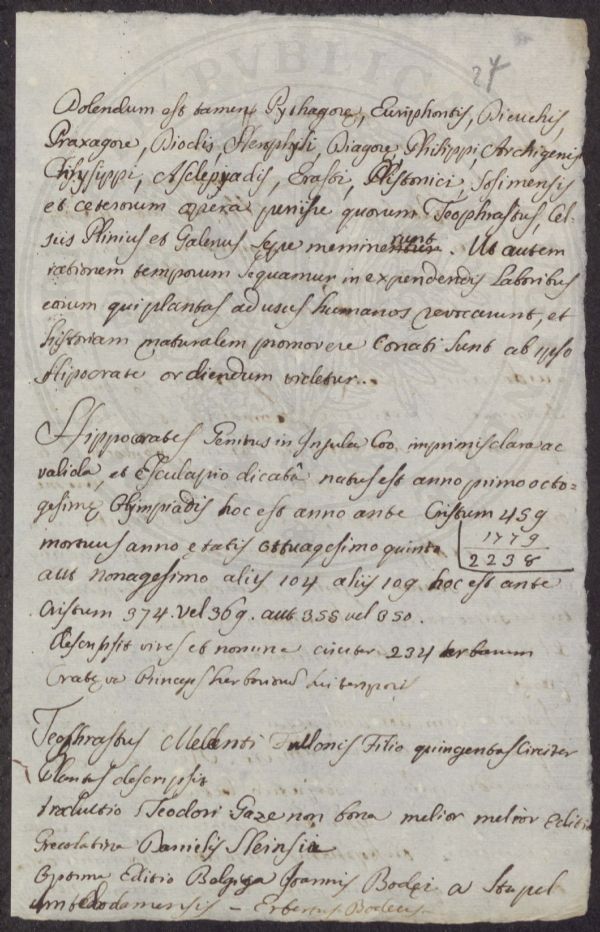 24
Dolendum est tamen Pythagore, Euriphontis, Dieuchis,
Praxagore, Dioclis, Herophyli, Diagore, Philippi, Archigenis
Chrysippi, Asclepyadis, Erasti, Plistonici, Sosimensis
et ceterorum opera periisse quorum Teophrastus, Cel-
sus Plinius et Galenus sepe meminerunt. Ut autem
rationem temporum sequamur in expendendis Laboribus
eorum qui plantas ad usus humanos revocarunt, et
historiam naturalem promovere Conati sunt ab ipso
Hipocrate ordiendum videtur.
Hippocrates Genitus in Insula Coo imprimis clara ac
valida, et Esculapio dicatâ natus est anno primo octo=
gesimę Olympiadis hoc est anno ante Cristum 459
1779
2238
mortuus anno ętatis octuagesimo quinto
aut nonagesimo aliis 104 aliis 109 hoc est ante
Cristum 374. vel 369. aut 355 vel 350.
Descripsit vires et nomina circiter 234 herbarum
Cratęva Princeps herbariorum sui temporis
Teophrastus Melanti Fullonis Filio quingentas circiter
Plantas descripsit
traductio Teodori Gaze non bona melior melior Editio
Grecolatina Danielis Heinsia
Optima Editio Belgiga Joannis Bodęi a Stapel
Amstelodamensis - Bodeus